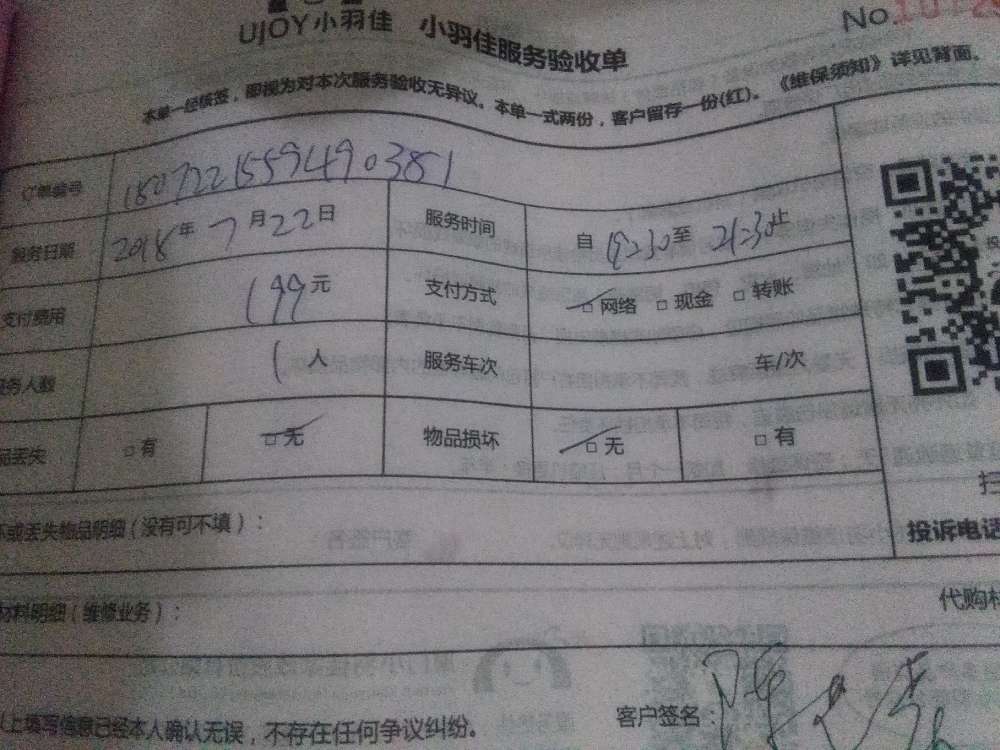 UJOY小羽佳 小羽佳服务验收单
No.
本单一经核签，即视为对本次服务验收无异议。本单一式两份，客户留存一份(红)。《维保须知》详见背面。
订单编号 1807221559490381
服务日期 2018年7月22日 服务时间 自19:30至21:30止
支付费用 199元 支付方式 □网络 □现金 □转账
服务人数 1人 服务车次 车/次
品丢失 □有 □无 物品损坏 □无 □有
坏或丢失物品明细（没有可不填）：
扫
投诉电话
材料明细（维修业务）：
代购材
以上填写信息已经本人确认无误，不存在任何争议纠纷。 客户签名：